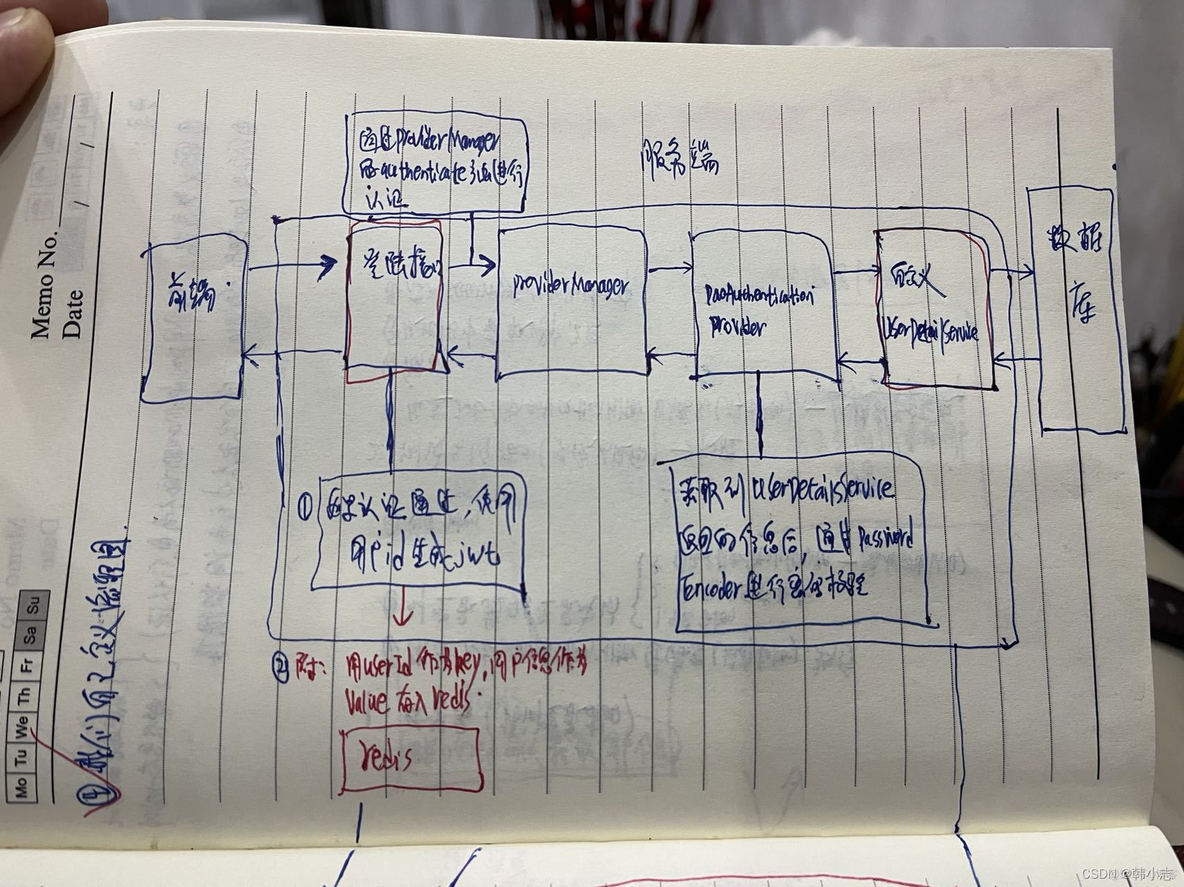 Memo No.
Date / /
Mo Tu We Th Fr Sa Su
④ 我们自己定义流程图.
通过providerManager
的authenticate方法进行
认证
服务端
前端
登陆接口
providerManager
DaoAuthentication
provider
自定义
UserDetailService
数据
库
① 如果认证通过, 使用
用户id生成jwt
获取到UserDetailsService
返回的信息后, 通过Password
Encoder进行密码校验
② 同时: 用userId作为key, 用户信息作为
value存入redis.
redis
CSDN @韩小志